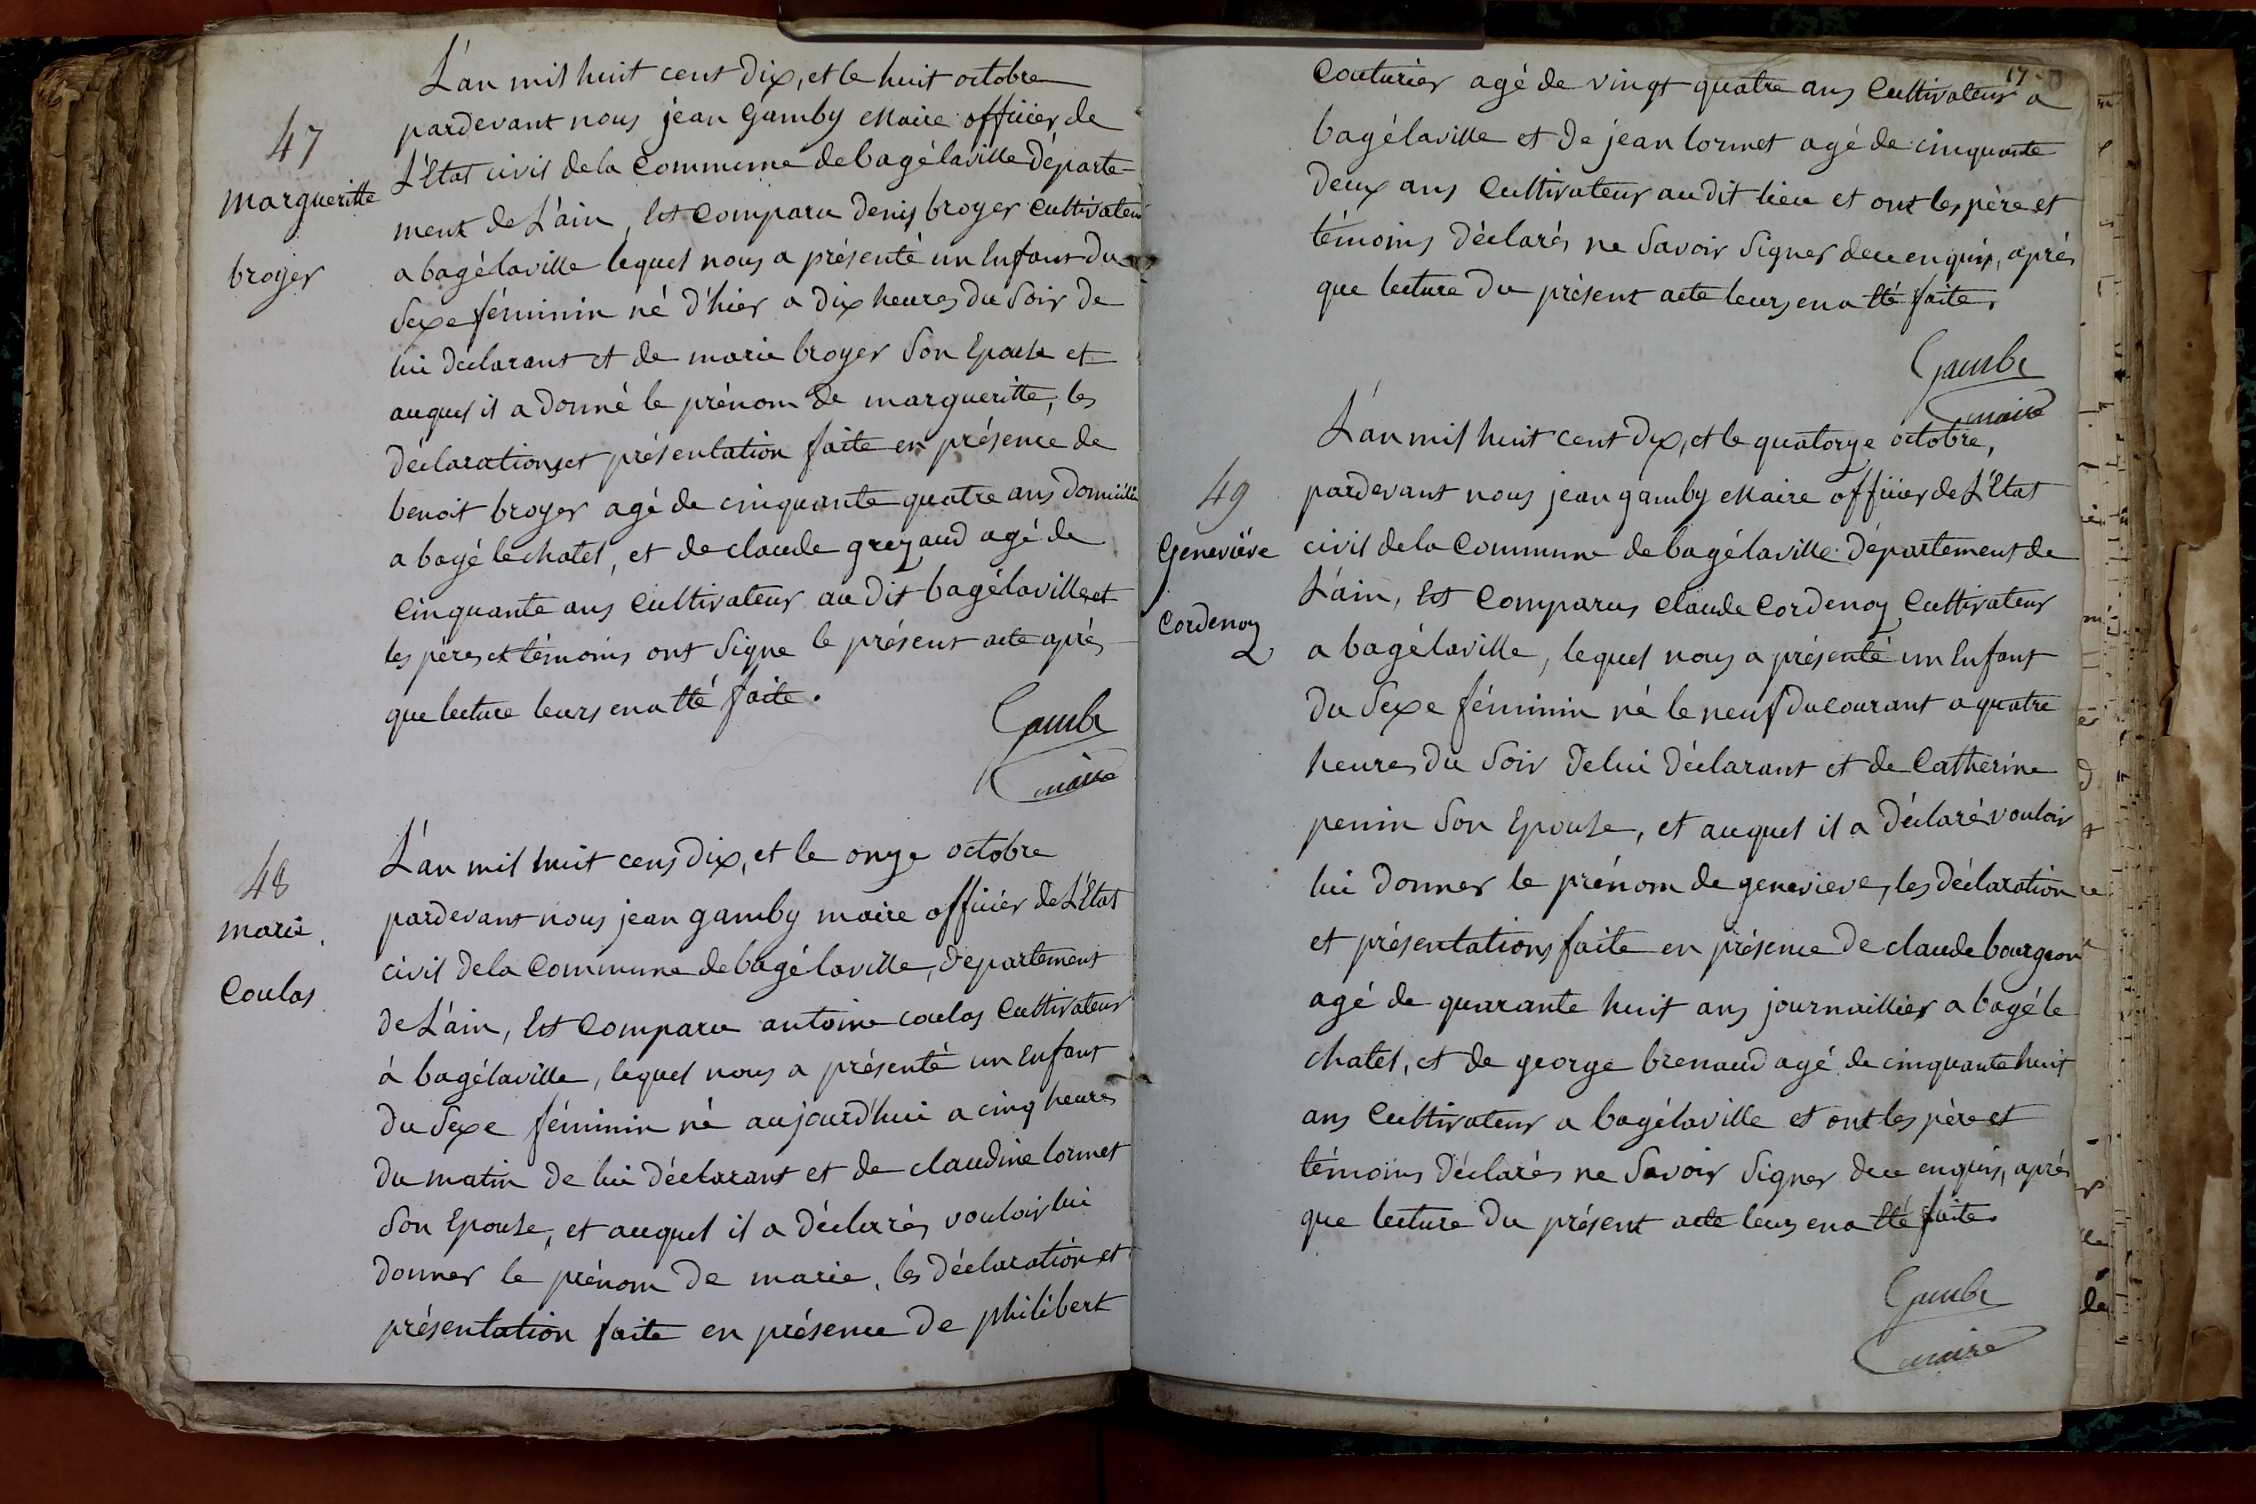 47
margueritte
broyer
L'an mil huit cent dix, et le huit octobre
pardevant nous jean gamby Maire officier de
L'Etat civil de la Commune de bagélaville Départe-
ment de L'ain, Est Comparu denis broyer Cultivateur
a bagélaville lequel nous a présenté un Enfant Du
Sexe féminin né d'hier a dix heures du Soir De
lui déclarant et de marie broyer Son Epouse et
auquel il a donné le prénom de margueritte, les
déclarations et présentation faite en présence de
benoit broyer agé de cinquante quatre ans domicilié
a bagé le chatel, et de claude greyaud agé de
Cinquante ans Cultivateur au dit bagélaville, et
les pères et témoins ont Signe le présent acte après
que lecture leurs en a été faite.
Gambi
maire
48
marie
Coulas
L'an mil huit cens dix, et le onze octobre
pardevant nous jean gamby maire officier de L'Etat
civil de la Commune de bagélaville, département
de L'ain, Est Comparu antoine coulas Cultivateur
à bagélaville, lequel nous a présenté un Enfant
du Sexe féminin né aujourd'hui a cinq heures
du matin de lui déclarant et de claudine lormet
Son Epouse, et auquel il a déclarés vouloir lui
donner le prénom de marie, les déclaration et
présentation faite en présence de philibert
17
Couturier agé de vingt quatre ans Cultivateur a
bagélaville et de jean lormet agé de cinquante
deux ans Cultivateur au dit lieu et ont les père et
témoins déclarés ne Savoir Signer de ce enquis, après
que lecture du présent acte leurs en a été faite.
Gambi
maire
49
Geneviève
Cordenoz
L'an mil huit cent dix, et le quatorze octobre,
pardevant nous jean gamby Maire officier de L'Etat
civil de la Commune de bagélaville département de
L'ain, Est Comparus claude Cordenoz Cultivateur
a bagélaville, lequel nous a présenté un Enfant
du Sexe féminin né le neuf du courant a quatre
heures du Soir de lui déclarant et de Catherine
penin Son Epouse, et auquel il a déclarés vouloir
lui donner le prénom de genevieve, les déclaration
et présentations faite en présence de claude bourgeon
agé de quarante huit ans journaillier a bagé le
chatel, et de george brenaud agé de cinquante huit
ans Cultivateur a bagélaville et ont les père et
témoins déclarés ne Savoir Signer de ce enquis, après
que lecture du présent acte leurs en a été faite.
Gambi
maire